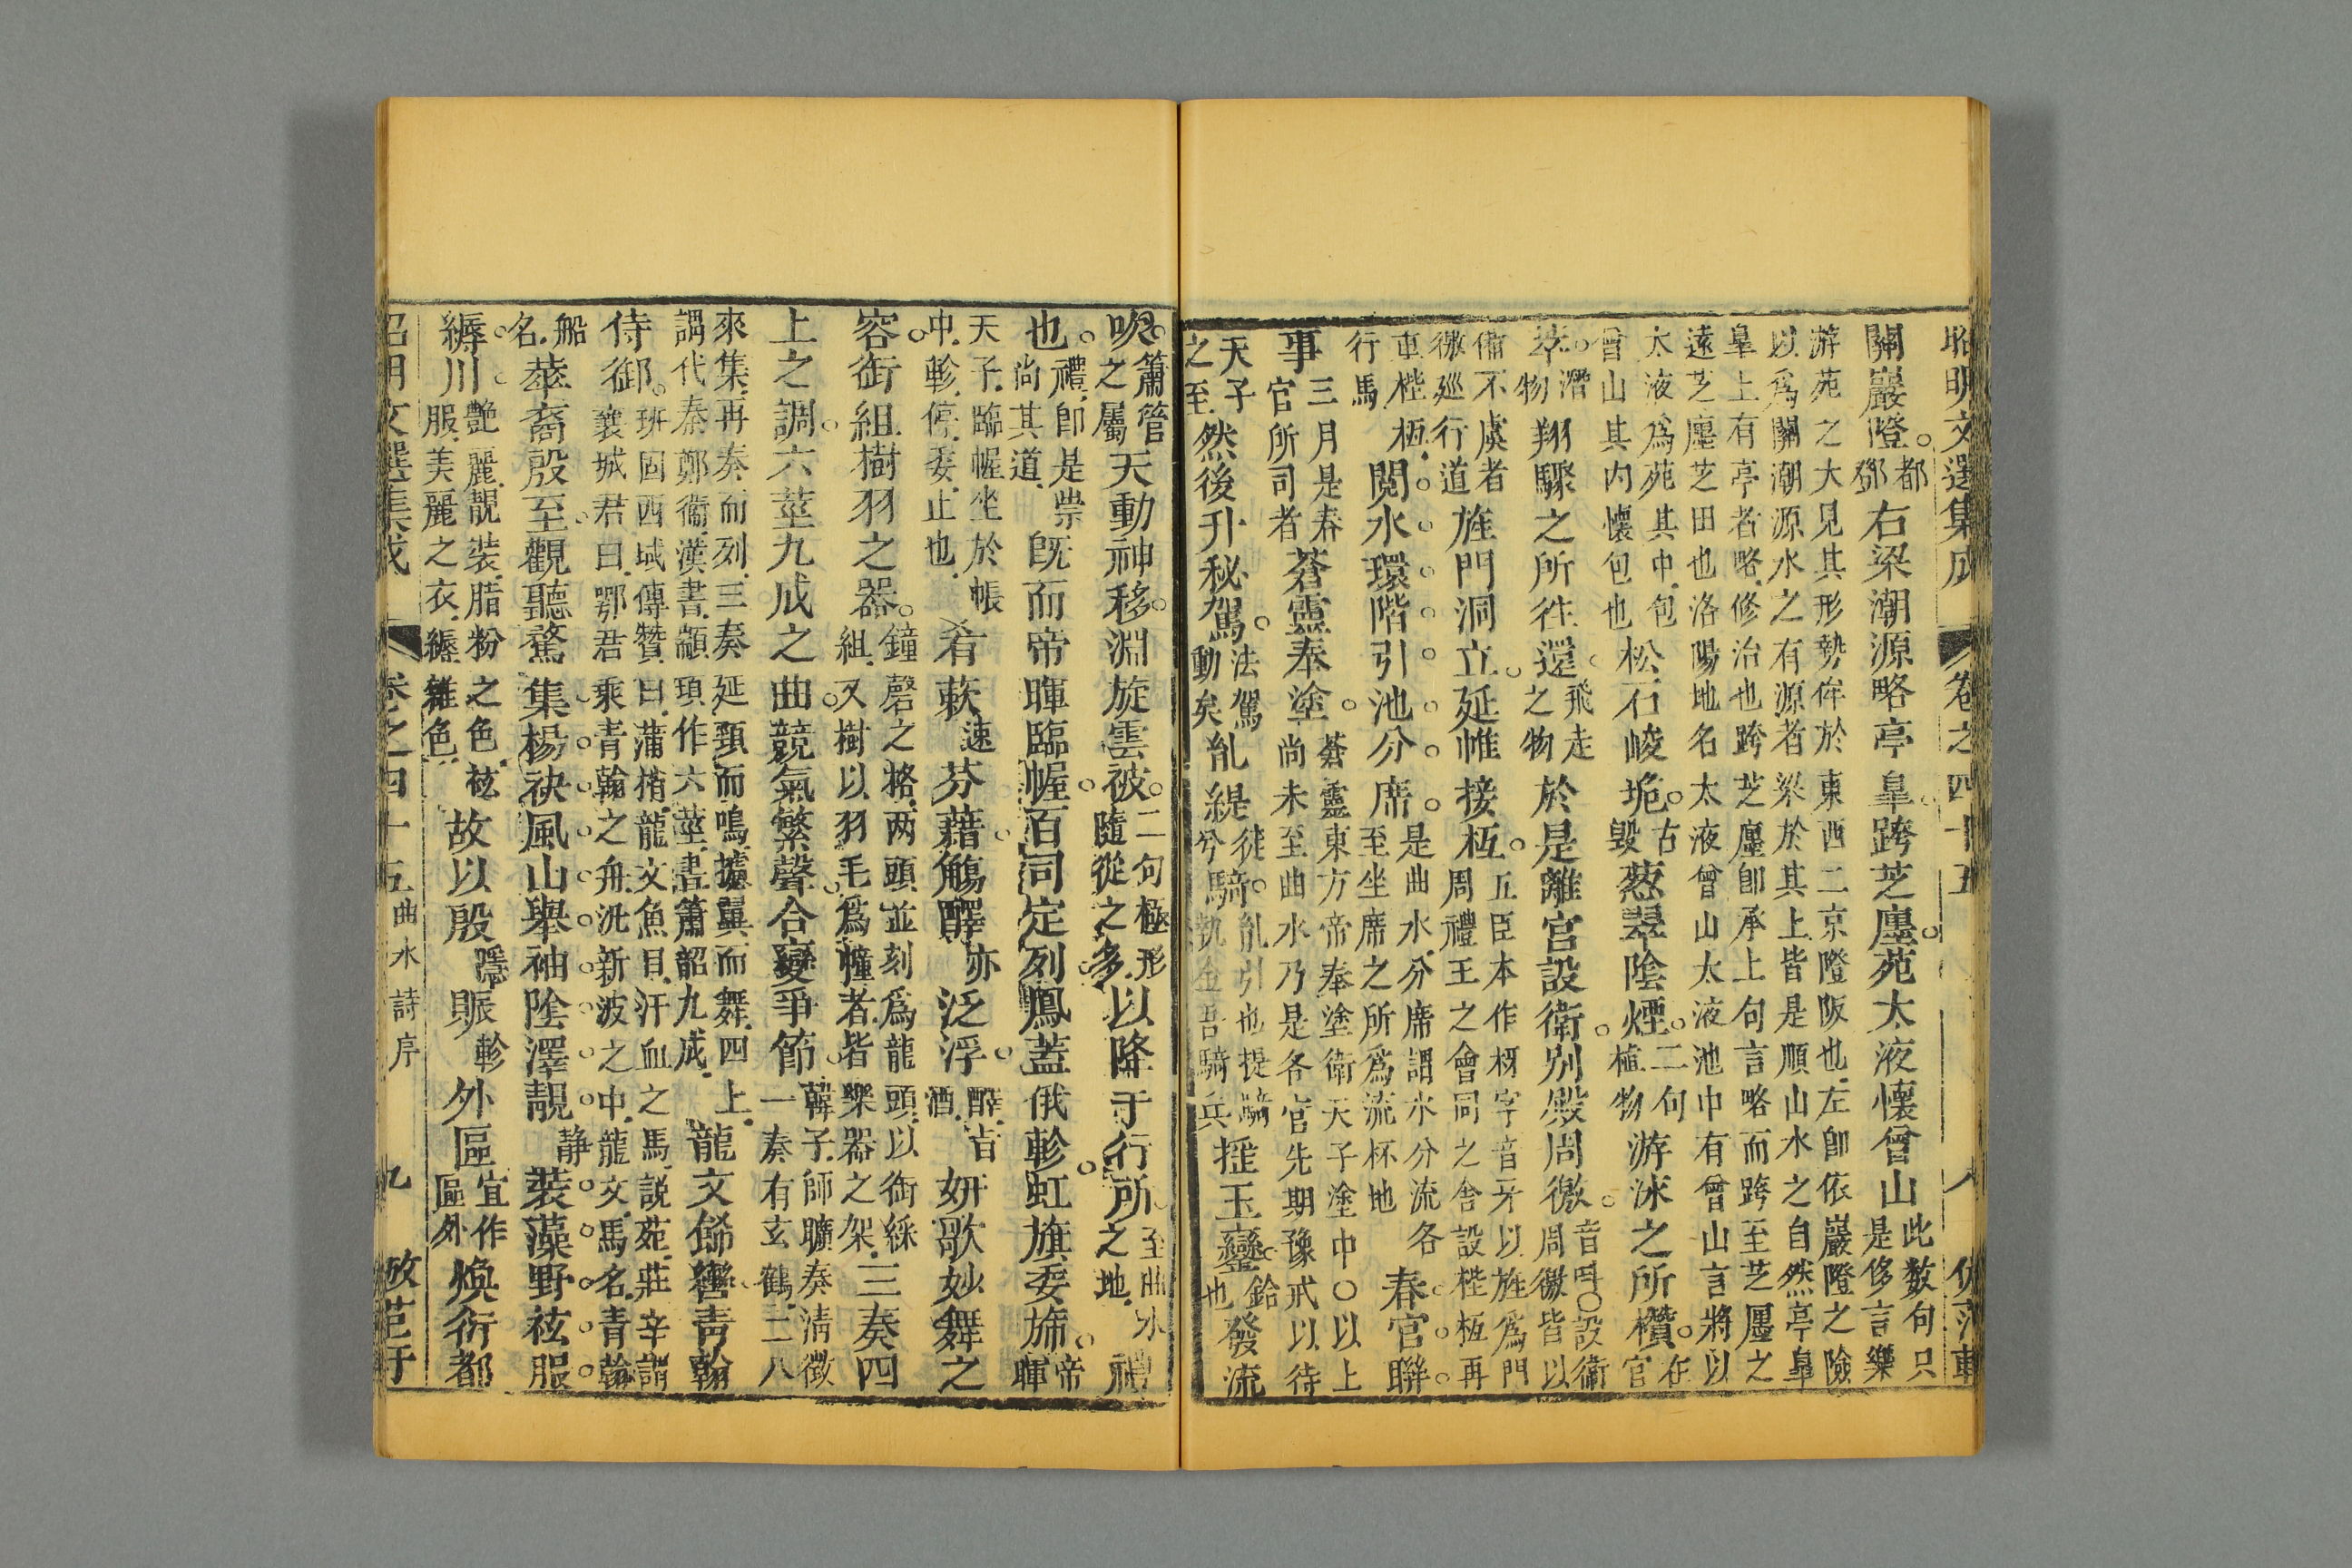 昭明文選集成 卷之四十五 八
關巖隥都鄧右梁潮源略亭皐跨芝廛苑太液懷曾山此數句只是侈言樂
游苑之大見其形勢侔於東西二京隥阪也左卽依巖隥之險
以爲關潮源水之有源者梁於其上皆是順山水之自然亭皐
皐上有亭者略修治也跨芝廛卽承上句言略而跨至芝廛之
遠芝廛芝田也洛陽地名太液曾山太液池中有曾山言將以
太液爲苑其中包
曾山其內懷包也松石峻垝古毀葱翠陰煙二句植物游泳之所欑在官
萃潛物翔驟之所往還飛走之物於是離宮設衛別殿周徼音叫○設衛周徼皆以
備不虞者
徼廵行道旌門洞立延帷接枑五臣本作枒字音牙以旌爲門周禮王之會同之舍設梐枑再
車梐枑
行馬閱水環階引池分席是曲水分席謂水分流各至坐席之所爲流杯地春官聯
事三月是春官所司者蒼靈奉塗蒼靈東方帝奉塗衛天子塗中○以上尚未至曲水乃是各官先期豫戒以待
天子之至然後升秘駕法駕動矣胤緹徒兮騎胤引也提騎執金吾騎兵摇玉鑾鈴也發流
吹簫管之屬天動神移淵旋雲被二句極形隨從之多以降于行所至曲水之地禮
也禮卽是祟尚其道旣而帝暉臨幄百司定列鳳蓋俄軫虹旗委旆帝暉
天子臨幄坐於帳
中軫停委止也肴蔌速芬藉觴醳亦泛浮醳旨酒妍歌妙舞之
容銜組樹羽之器鐘磬之格两頭並刻爲龍頭以銜綵組又樹以羽毛爲幢者皆樂器之架三奏四
上之調六莖九成之曲競氣繁聲合變爭節韓子師曠奏淸徵一奏有玄鶴二八
來集再奏而列三奏延頸而鳴攄翼而舞四上
謂代秦鄭衞漢書顓頊作六莖書簫韶九成龍文飾轡青翰
侍御班固西域傳贊曰蒲梢龍文魚目汗血之馬説苑莊辛謂襄城君曰鄂君乘青翰之舟汎新波之中龍文馬名青翰
船名華裔殷至觀聽騖集楊袂風山舉袖陰澤靚静裝藻野袨服
縟川艶麗靚裝脂粉之色袨服美麗之衣縟雜色故以殷隱賑軫外區宜作區外煥衍都
昭明文選集成 卷之四十五 曲水詩序 九 倣范軒